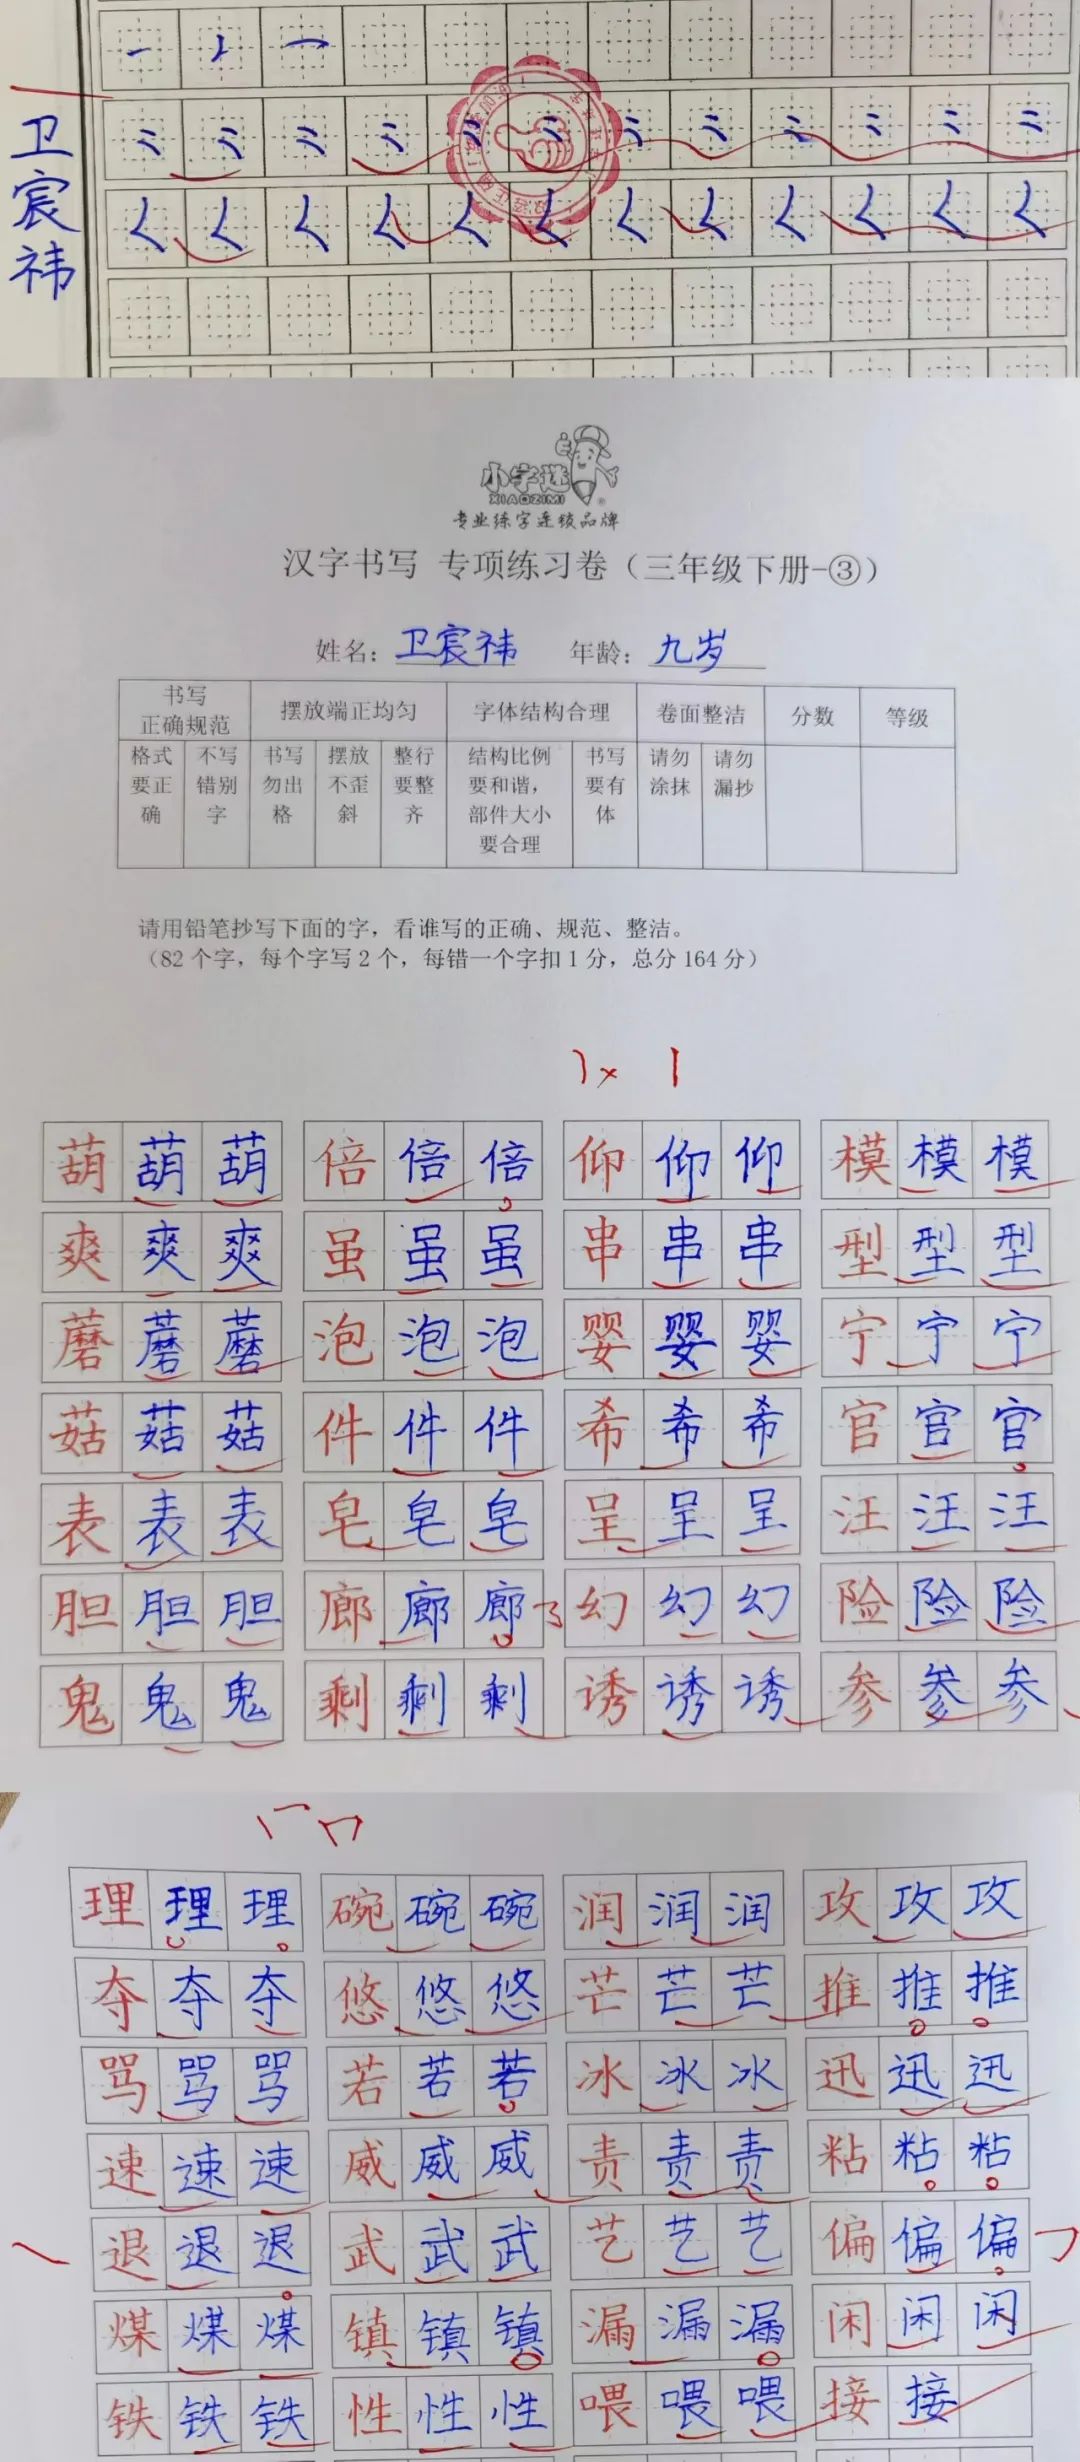 卫宸祎
小字迷
XIAOZIMI
专业练字连锁品牌
汉字书写 专项练习卷（三年级下册-③）
姓名：卫宸祎 年龄：九岁
书写正确规范 摆放端正均匀 字体结构合理 卷面整洁 分数 等级
格式要正确 不写错别字 书写勿出格 摆放不歪斜 整行要整齐 结构比例要和谐，部件大小要合理 书写要有体 请勿涂抹 请勿漏抄
请用铅笔抄写下面的字，看谁写的正确、规范、整洁。
（82个字，每个字写2个，每错一个字扣1分，总分164分）
葫葫葫 倍倍倍 仰仰仰 模模模
爽爽爽 虽虽虽 串串串 型型型
蘑蘑蘑 泡泡泡 婴婴婴 宁宁宁
菇菇菇 件件件 希希希 官官官
表表表 皂皂皂 呈呈呈 汪汪汪
胆胆胆 廊廊廊 幻幻幻 险险险
鬼鬼鬼 剩剩剩 诱诱诱 参参参
理理理 碗碗碗 润润润 攻攻攻
夺夺夺 悠悠悠 芒芒芒 推推推
骂骂骂 若若若 冰冰冰 迅迅迅
速速速 威威威 责责责 粘粘粘
退退退 武武武 艺艺艺 偏偏偏
煤煤煤 镇镇镇 漏漏漏 闲闲闲
铁铁铁 性性性 喂喂喂 接接